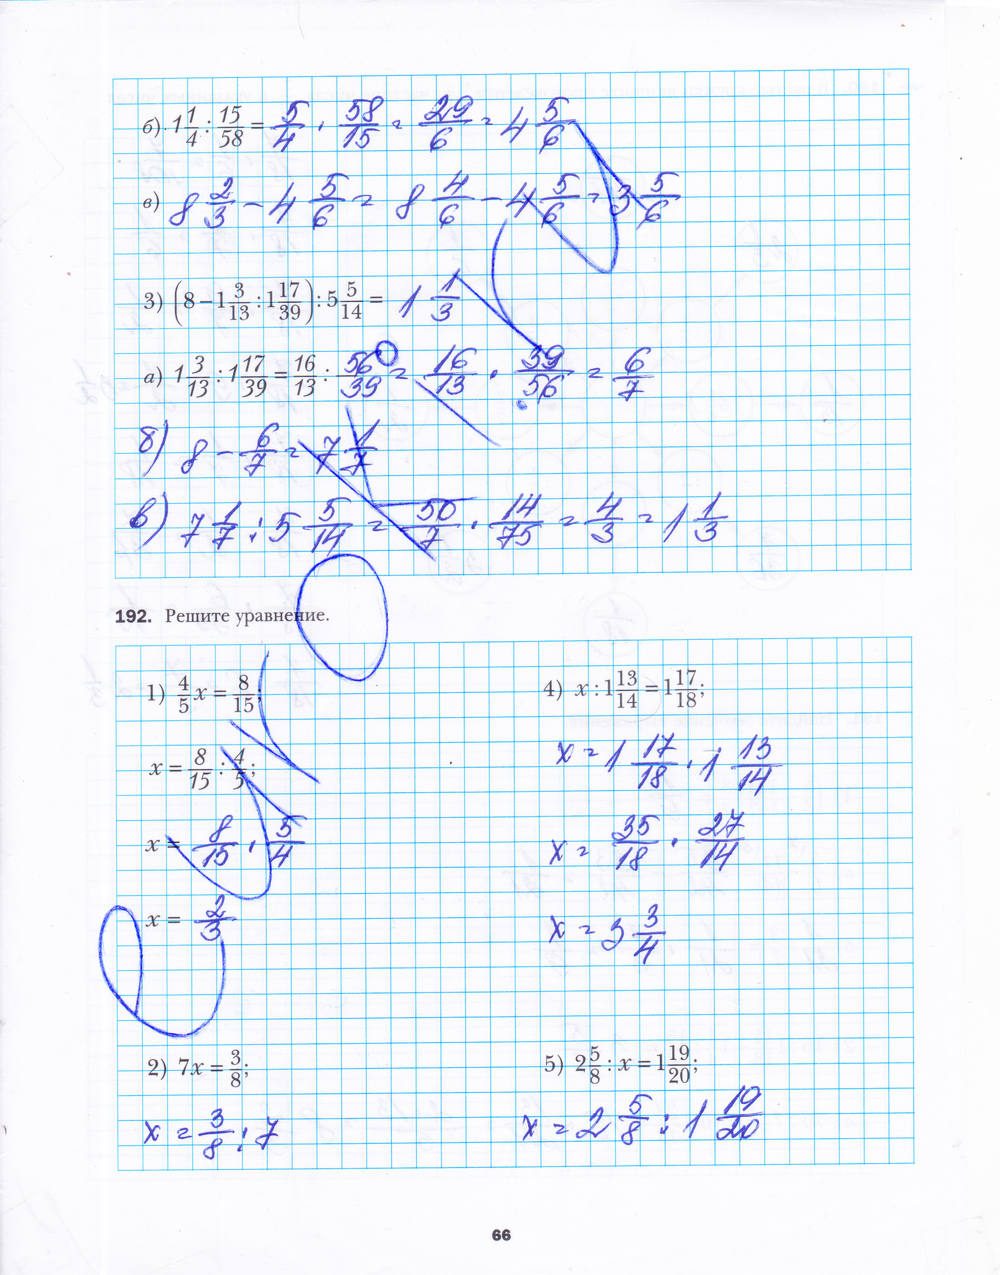 б) 1 1/4 : 15/58 = 5/4 · 58/15 = 29/6 = 4 5/6
в) 8 2/3 − 4 5/6 = 8 4/6 − 4 5/6 = 3 5/6
3) (8 − 1 3/13 : 1 17/39) : 5 5/14 = 1 1/3
а) 1 3/13 : 1 17/39 = 16/13 : 56/39 = 16/13 · 39/56 = 6/7
б) 8 − 6/7 = 7 1/7
в) 7 1/7 : 5 5/14 = 50/7 · 14/75 = 4/3 = 1 1/3
192. Решите уравнение.
1) 4/5 x = 8/15;
x = 8/15 : 4/5;
x = 8/15 · 5/4
x = 2/3
4) x : 1 13/14 = 1 17/18;
x = 1 17/18 · 1 13/14
x = 35/18 · 27/14
x = 3 3/4
2) 7x = 3/8;
x = 3/8 : 7
5) 2 5/8 : x = 1 19/20;
x = 2 5/8 : 1 19/20
66